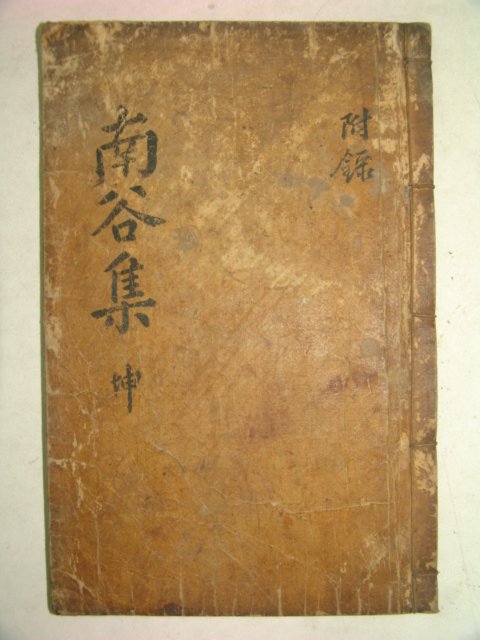 附錄
南谷集 坤